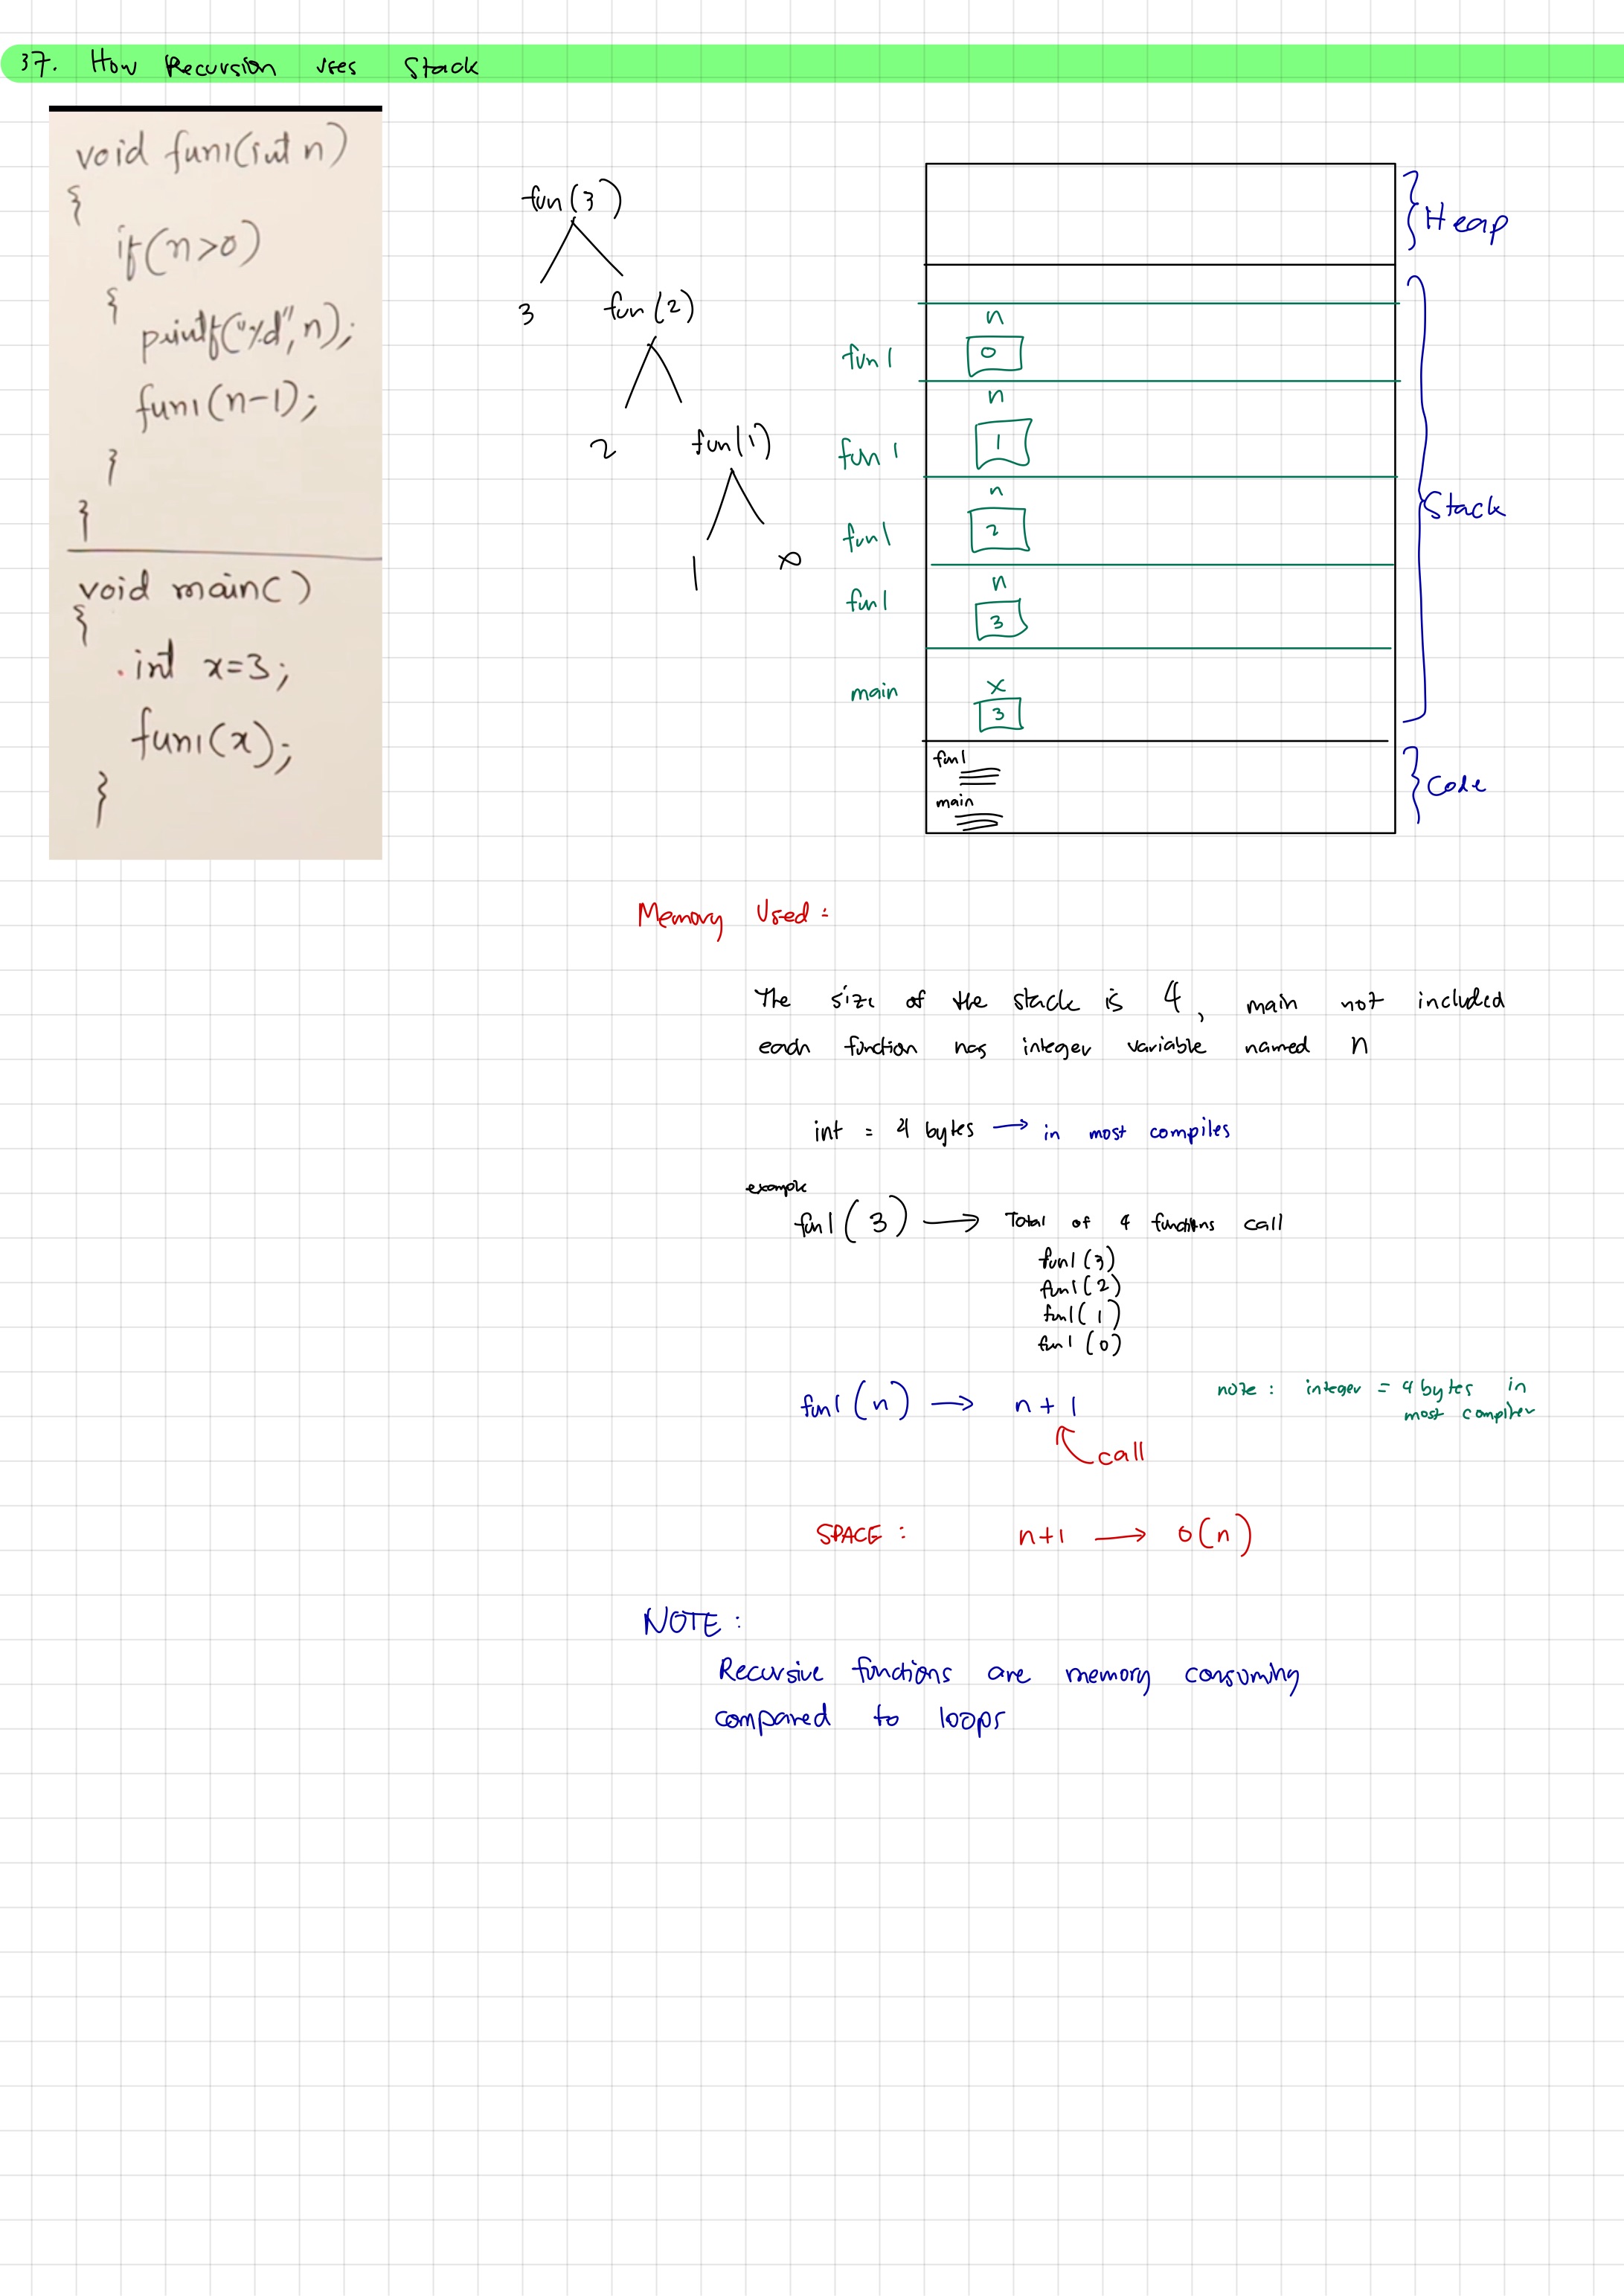 37. How Recursion uses Stack
void fun1(int n)
{
if(n>0)
{
printf("%d",n);
fun1(n-1);
}
}
void main()
{
int x=3;
fun1(x);
}
fun(3)
3 fun(2)
2 fun(1)
1
Heap
Stack
Code
n
fun1 0
n
fun1 1
n
fun1 2
n
fun1 3
x
main 3
fun1
main
Memory Used:
The size of the stack is 4, main not included
each function has integer variable named n
int = 4 bytes → in most compiles
example
fun1(3) → Total of 4 functions call
fun1(3)
fun1(2)
fun1(1)
fun1(0)
fun1(n) → n+1
call
note: integer = 4 bytes in
most compiler
SPACE: n+1 → O(n)
NOTE:
Recursive functions are memory consuming
compared to loops